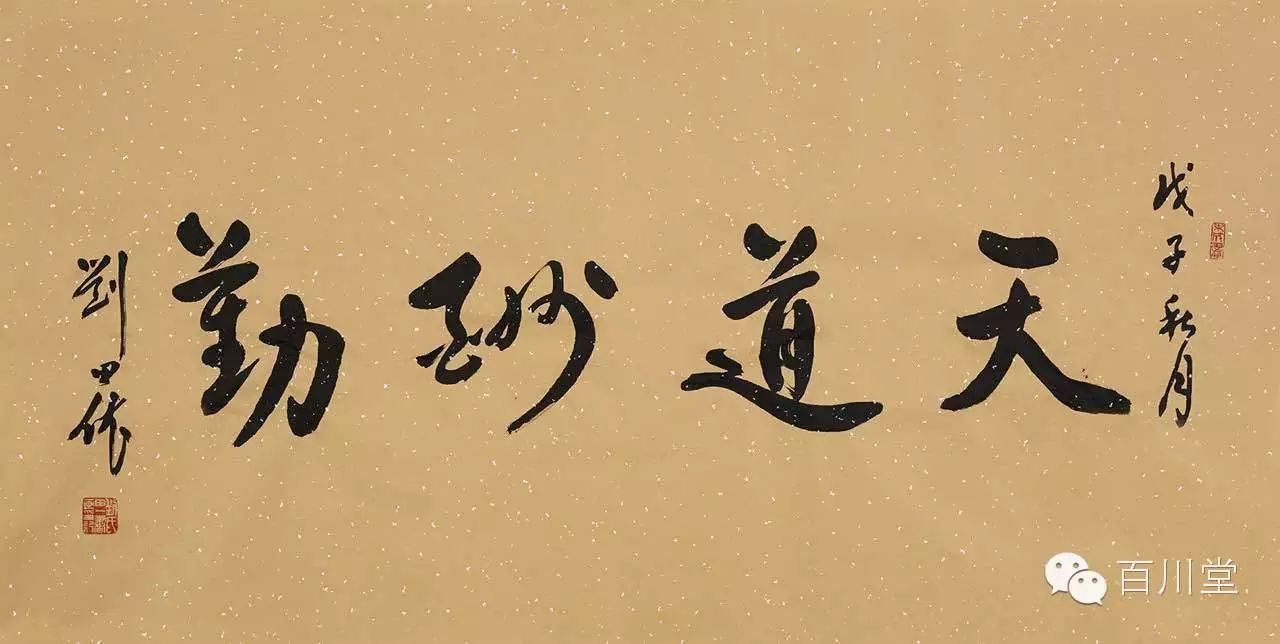 戊子秋月
天道酬勤
劉田依
百川堂